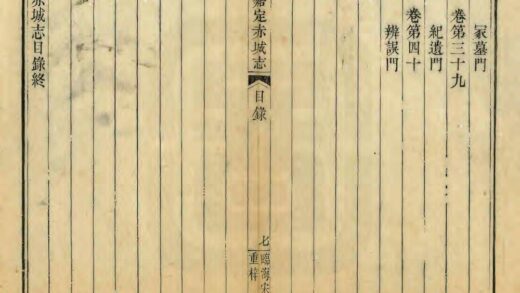 冡墓門
卷第三十九
紀遺門
卷第四十
辨誤門
嘉定赤城志
目錄
七
臨海宋
重梓
赤城志目錄終